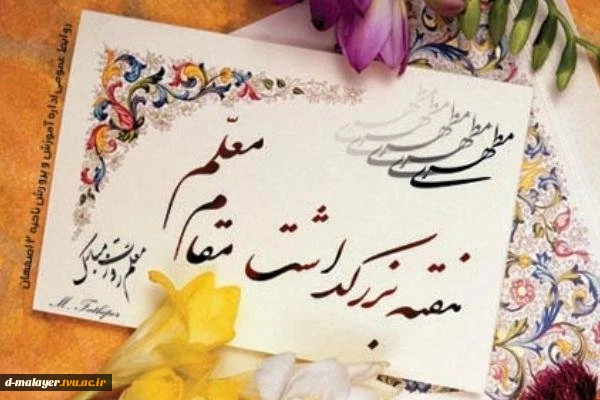 مطهری
مطهری
مطهری
مطهری
مطهری
هفته بزرگداشت
مقام
معلّم
معلم روزت مبارک
روابط عمومی اداره آموزش و پرورش ناحیه ۲ اصفهان
d-malayer.tvu.ac.ir